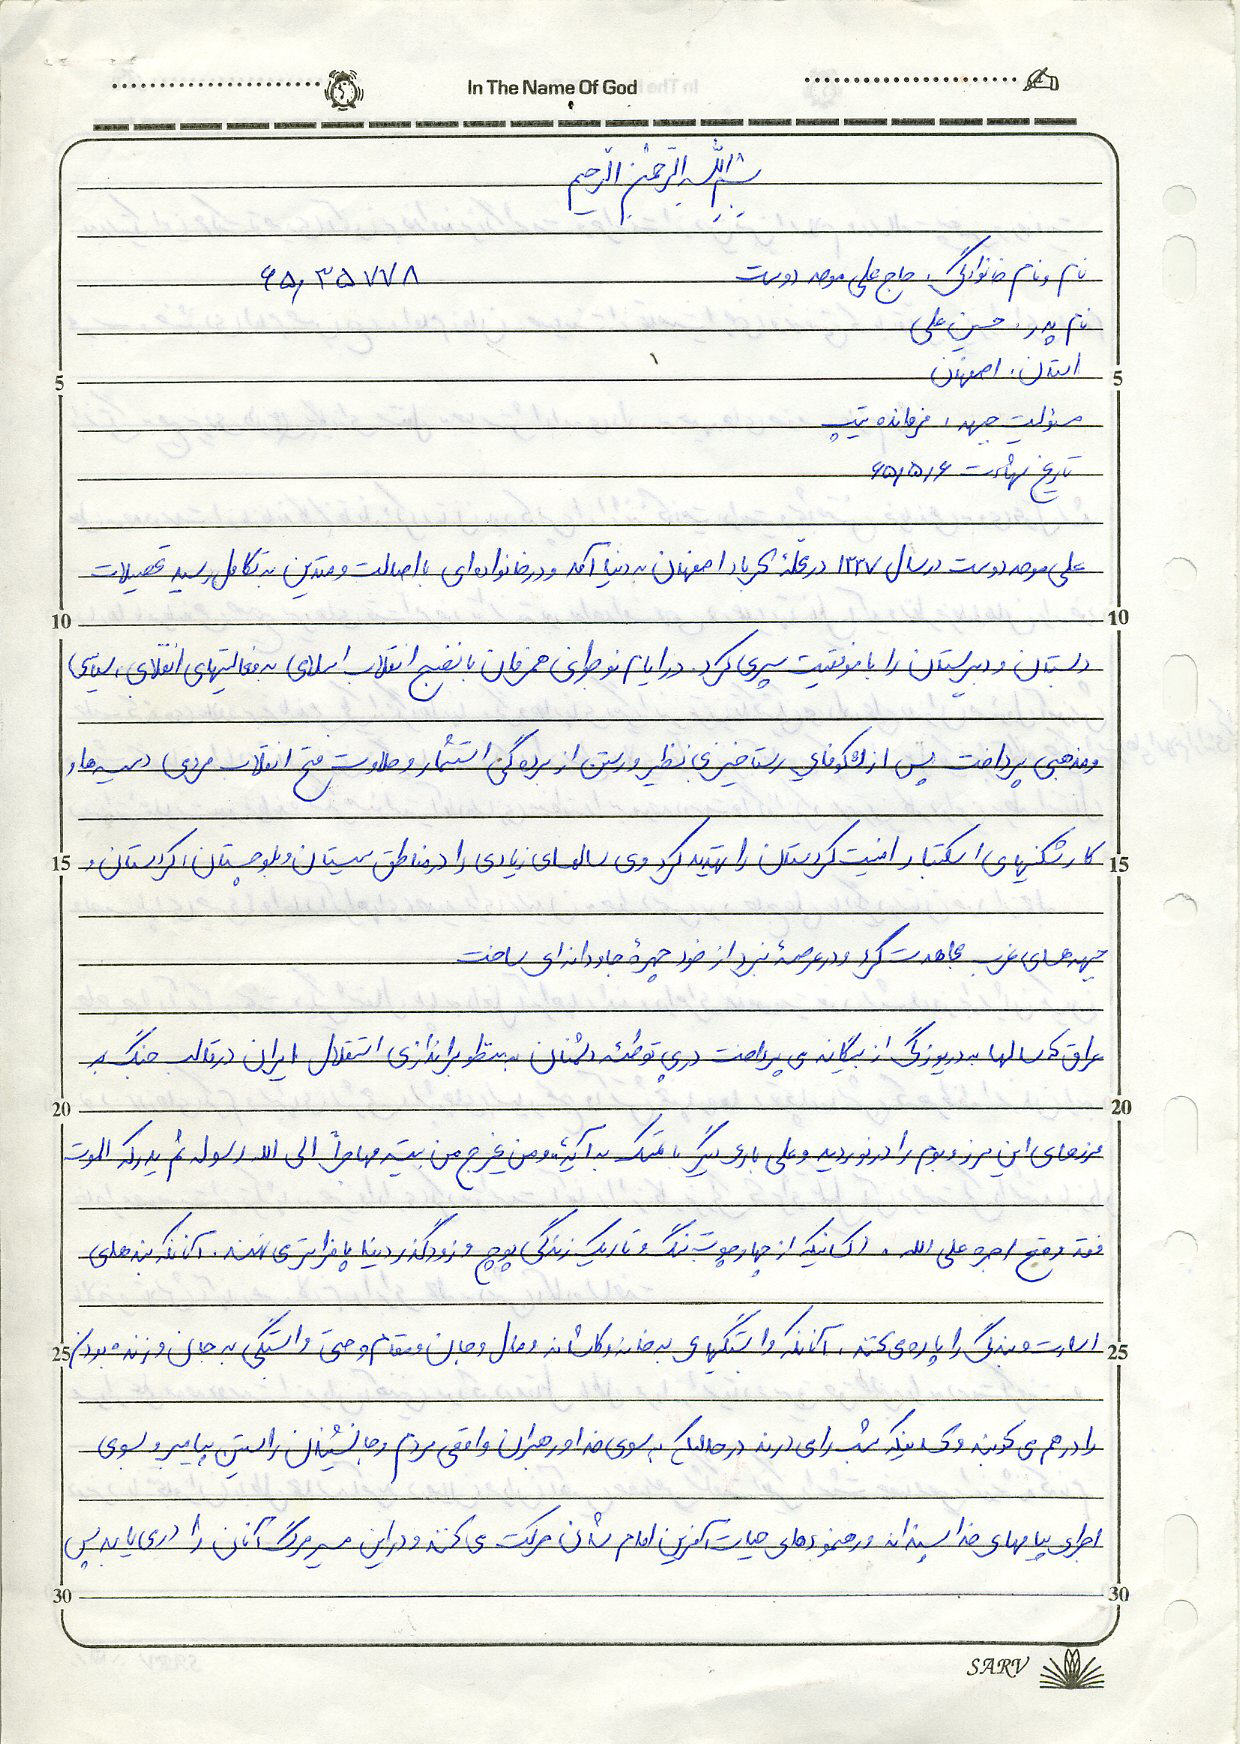 In The Name Of God
بسم الله الرحمن الرحیم
نام و نام خانوادگی: حاج علی موحد دوست ۶۵,۳۵۷۷۸
نام پدر: حسین علی
استان: اصفهان
مسئولیت جبهه: فرمانده تیپ
تاریخ شهادت ۶۵,۵,۶
علی موحد دوست در سال ۱۳۳۷ در محلهٔ کرباد اصفهان به دنیا آمد و در خانواده‌ای با اصالت و متدین به تکامل رسید تحصیلات
دبستان و دبیرستان را با موفقیت سپری کرد. در ایام نوجوانی همزمان با نضج انقلاب اسلامی به فعالیتهای انقلابی، سیاسی
و مذهبی پرداخت پس از شکوفایی رستاخیز بی نظیر و رستن از بردگی استثمار و حلاوت فتح انقلاب مردمی دسیسه‌ها و
کارشکنیهای استکبار امنیت کردستان را تهدید کرد وی سالهای زیادی را در مناطق سیستان و بلوچستان، کردستان و
جبهه‌های غرب مجاهدت کرد و در عرصهٔ نبرد از خود چهرهٔ جاودانه‌ای ساخت
عراق که سالها به دریوزگی از بیگانه می پرداخت در پی توطئه دشمنان به منظور براندازی استقلال ایران در قالب جنگ به
مرزهای این مرز و بوم را در نوردید و علی بار دیگر با تمسک به آیهٔ، و من یخرج من بیته مهاجراً الی الله و رسوله ثم یدرکه الموت
فقد وقع اجره علی الله. کسانیکه از چهارچوب تنگ و تاریک زندگی پوچ و زودگذر دنیا پا فراتر می نهند. آنانکه بندهای
اسارت و بندگی را پاره می‌کنند. آنانکه وابستگیهای به خانه و کاشانه و مال و جان و مقام و حتی وابستگی به جان و زنده بودن
را در هم می کوبند و کسانیکه شب را می درند در حالیکه به سوی خدا و رهبران واقعی مردم و جانشینان راستین پیامبر و بسوی
اجرای پیامهای خدا پسندانه و رهنمودهای حیات آفرین امام شان حرکت می کنند و در این مسیر مرگ آنان را در می یابد پس
5
5
10
10
15
15
20
20
25
25
30
30
SARV